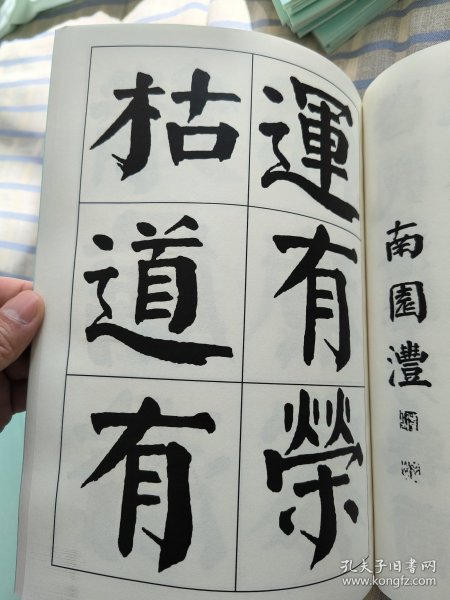 南園灃
運有榮
枯道有
孔夫子旧书网
www.kongfz.com